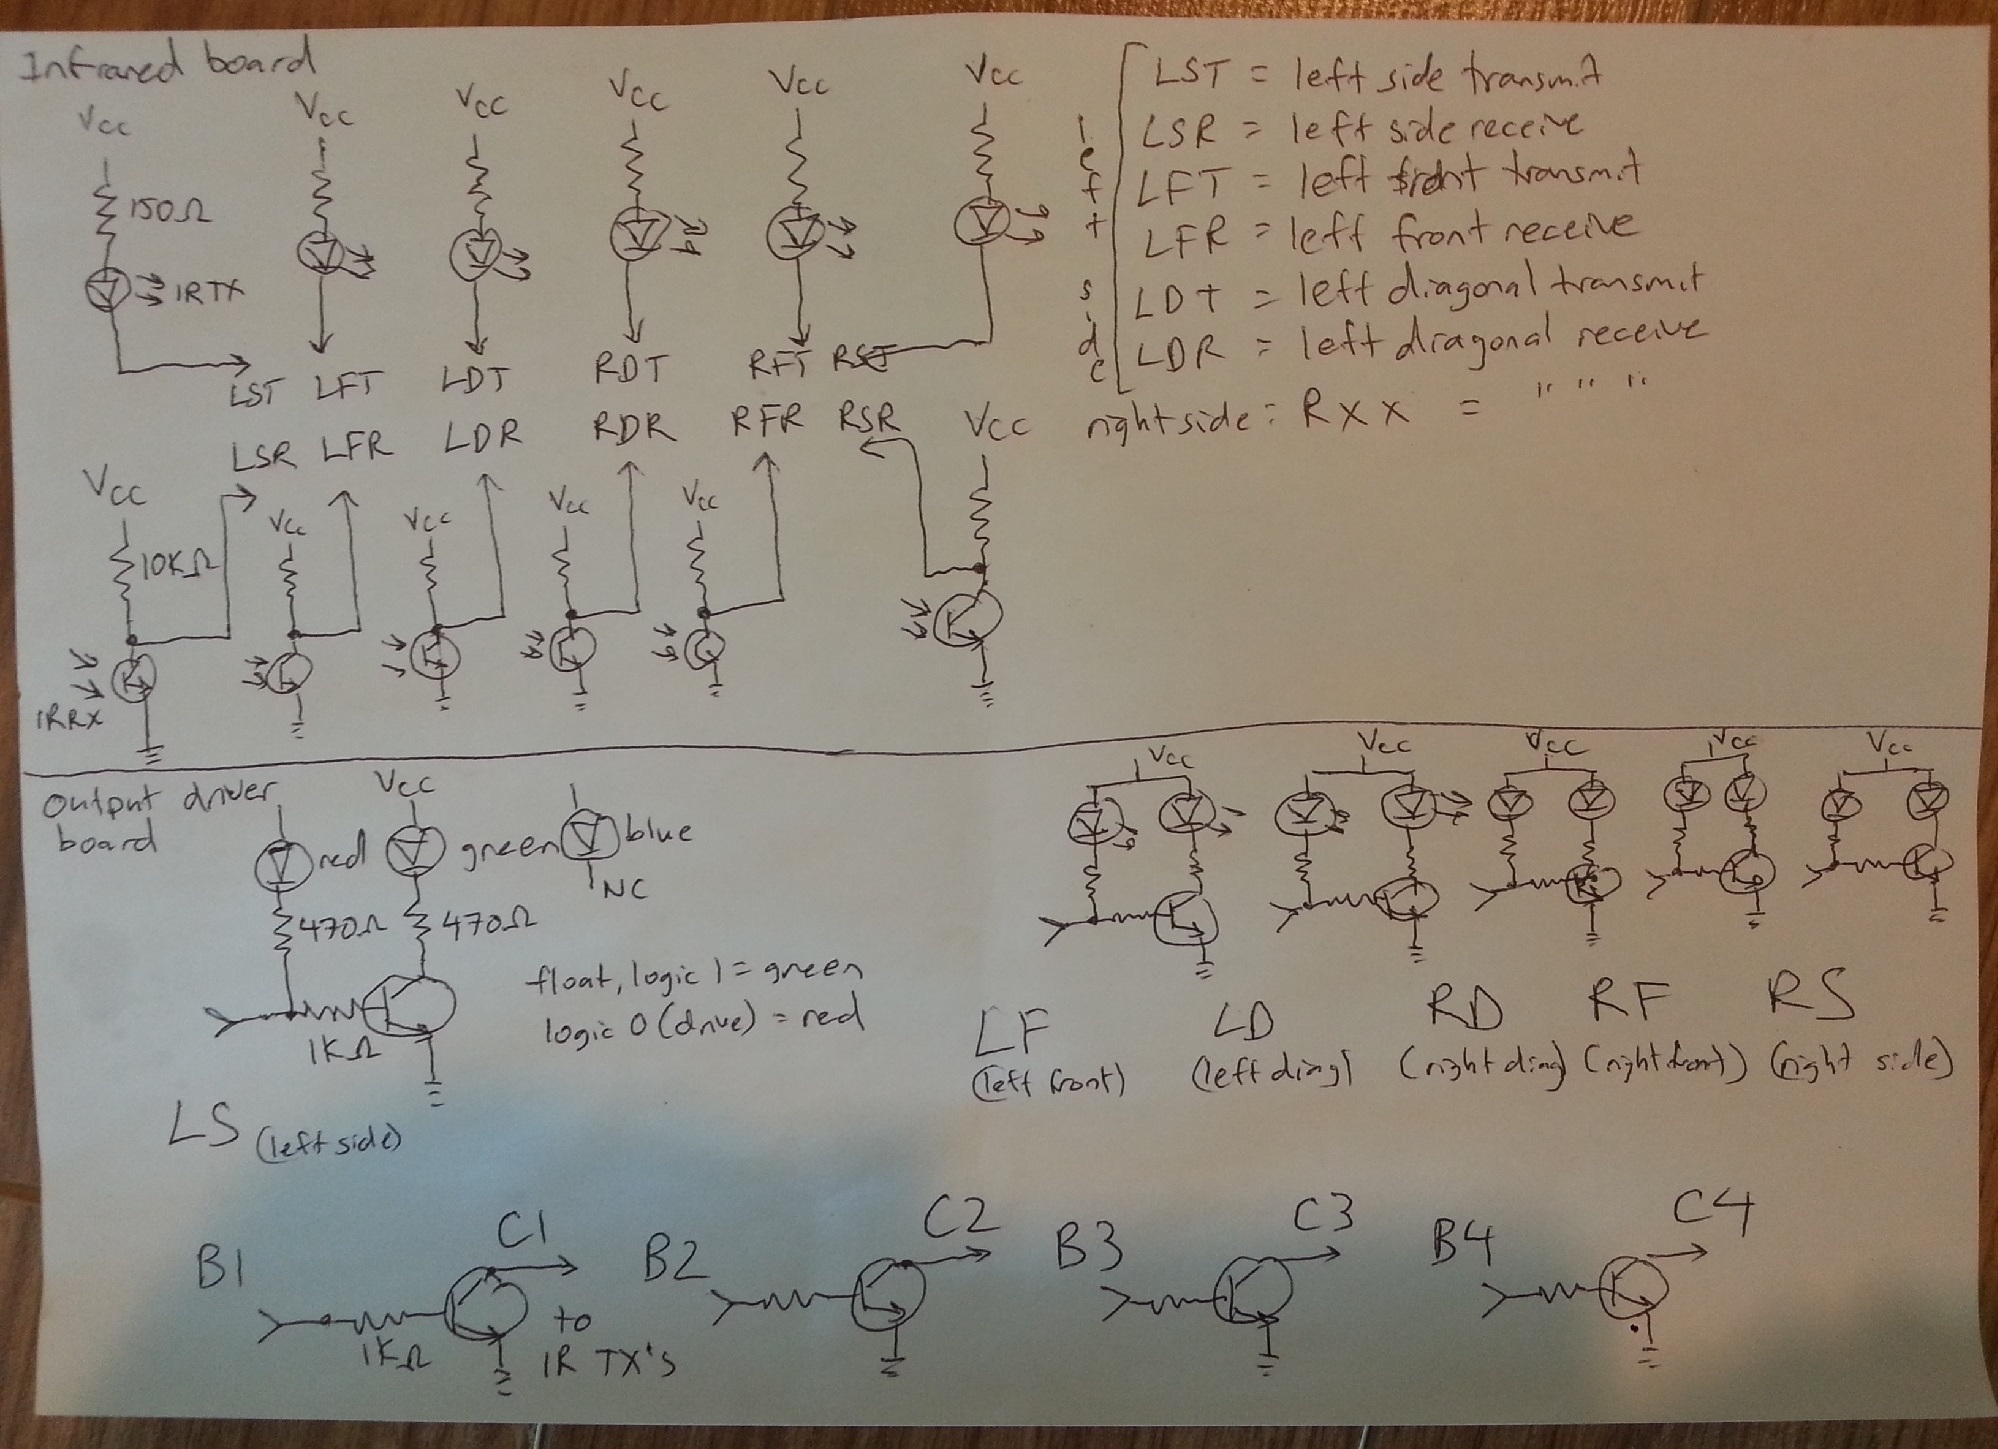 Infrared board
Vcc Vcc Vcc Vcc Vcc Vcc
150Ω
IRTX
LST LFT LDT RDT RFT RST
LSR LFR LDR RDR RFR RSR
Vcc Vcc Vcc Vcc Vcc Vcc
10KΩ
IRRX
left side
LST = left side transmit
LSR = left side receive
LFT = left front transmit
LFR = left front receive
LDT = left diagonal transmit
LDR = left diagonal receive
right side: Rxx = " " "
output driver
board
Vcc
red green blue
NC
470Ω 470Ω
1KΩ
float, logic 1 = green
logic 0 (drive) = red
LS (left side)
Vcc Vcc Vcc Vcc Vcc
LF LD RD RF RS
(left front) (left diag) (right diag) (right front) (right side)
B1 C1 B2 C2 B3 C3 B4 C4
1KΩ
to
IR TX's